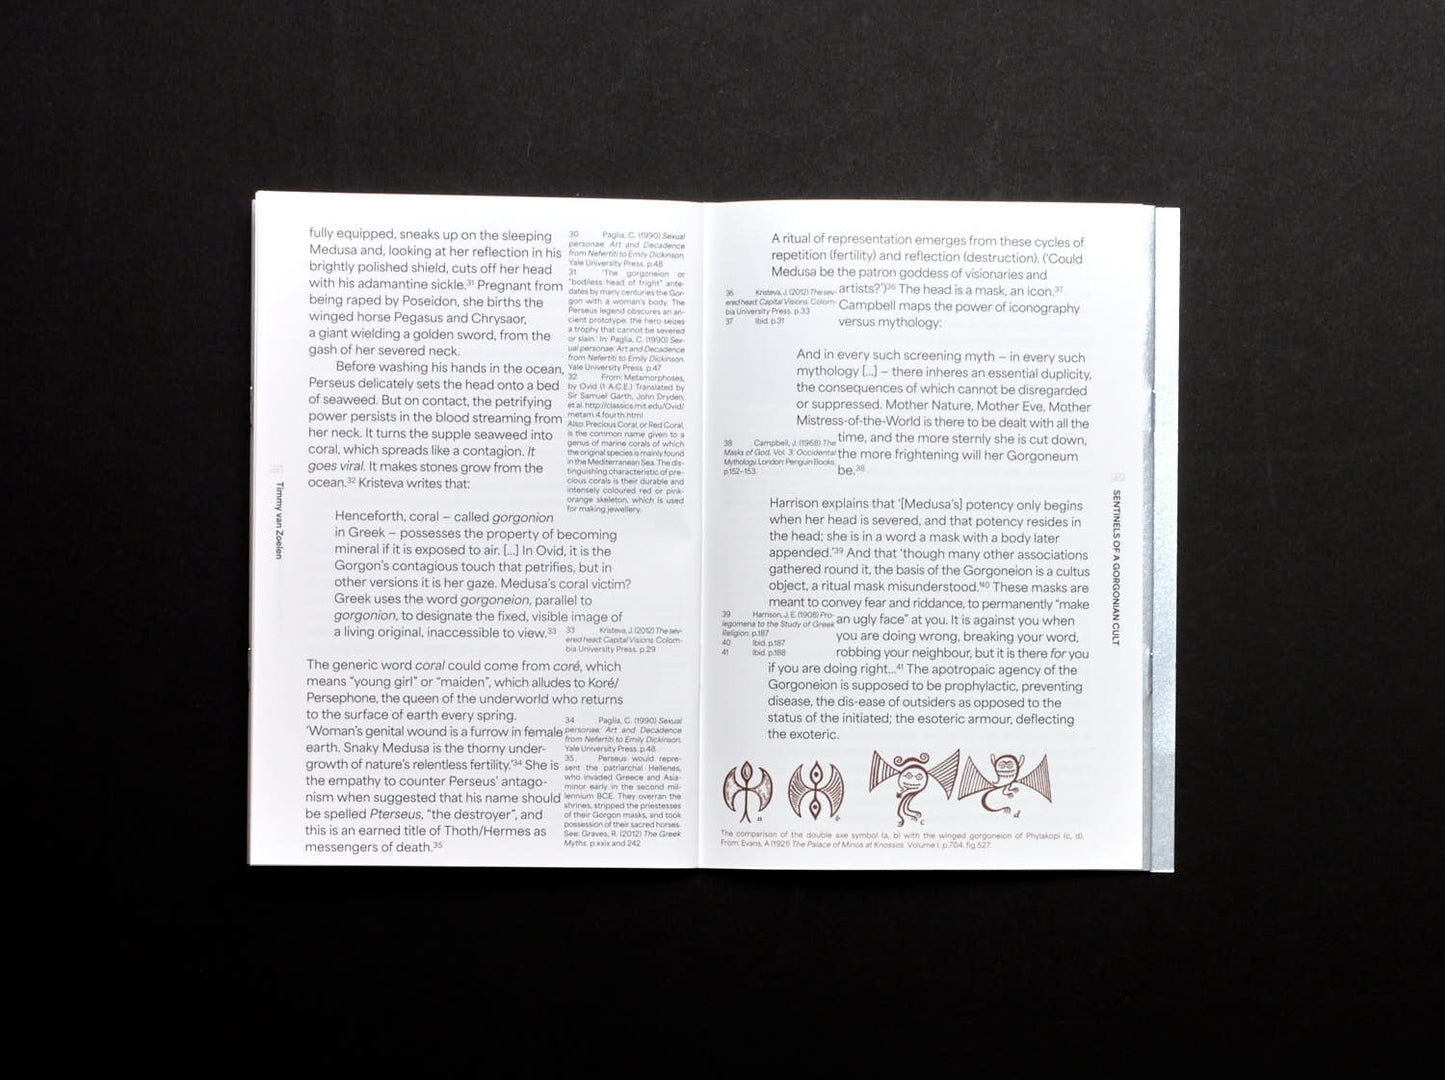 fully equipped, sneaks up on the sleeping
Medusa and, looking at her reflection in his
brightly polished shield, cuts off her head
with his adamantine sickle.31 Pregnant from
being raped by Poseidon, she births the
winged horse Pegasus and Chrysaor,
a giant wielding a golden sword, from the
gash of her severed neck.
Before washing his hands in the ocean,
Perseus delicately sets the head onto a bed
of seaweed. But on contact, the petrifying
power persists in the blood streaming from
her neck. It turns the supple seaweed into
coral, which spreads like a contagion. It
goes viral. It makes stones grow from the
ocean.32 Kristeva writes that:
Henceforth, coral – called gorgonion
in Greek – possesses the property of becoming
mineral if it is exposed to air. [...] In Ovid, it is the
Gorgon's contagious touch that petrifies, but in
other versions it is her gaze. Medusa's coral victim?
Greek uses the word gorgoneion, parallel to
gorgonion, to designate the fixed, visible image of
a living original, inaccessible to view.33
The generic word coral could come from coré, which
means "young girl" or "maiden", which alludes to Koré/
Persephone, the queen of the underworld who returns
to the surface of earth every spring.
'Woman's genital wound is a furrow in female
earth. Snaky Medusa is the thorny under-
growth of nature's relentless fertility.'34 She is
the empathy to counter Perseus' antago-
nism when suggested that his name should
be spelled Pterseus, "the destroyer", and
this is an earned title of Thoth/Hermes as
messengers of death.35
30 Paglia, C. (1990) Sexual
personae: Art and Decadence
from Nefertiti to Emily Dickinson.
Yale University Press. p.48
31 'The gorgoneion or
"bodiless head of fright" ante-
dates by many centuries the Gor-
gon with a woman's body. The
Perseus legend obscures an an-
cient prototype: the hero seizes
a trophy that cannot be severed
or slain.' In: Paglia, C. (1990) Sex-
ual personae: Art and Decadence
from Nefertiti to Emily Dickinson.
Yale University Press. p.47
32 From: Metamorphoses,
by Ovid (1 A.C.E.) Translated by
Sir Samuel Garth, John Dryden,
et al. http://classics.mit.edu/Ovid/
metam.4.fourth.html
Also: Precious Coral, or Red Coral,
is the common name given to a
genus of marine corals of which
the original species is mainly found
in the Mediterranean Sea. The dis-
tinguishing characteristic of pre-
cious corals is their durable and
intensely coloured red or pink-
orange skeleton, which is used
for making jewellery.
33 Kristeva, J. (2012) The sev-
ered head: Capital Visions. Colom-
bia University Press. p.29
34 Paglia, C. (1990) Sexual
personae: Art and Decadence
from Nefertiti to Emily Dickinson.
Yale University Press. p.48
35 Perseus would repre-
sent the patriarchal Hellenes,
who invaded Greece and Asia-
minor early in the second mil-
lennium BCE. They overran the
shrines, stripped the priestesses
of their Gorgon masks, and took
possession of their sacred horses.
See: Graves, R. (2012) The Greek
Myths. p.xxix and 242
Timmy van Zoelen
A ritual of representation emerges from these cycles of
repetition (fertility) and reflection (destruction). ('Could
Medusa be the patron goddess of visionaries and
artists?')36 The head is a mask, an icon.37
Campbell maps the power of iconography
versus mythology:
And in every such screening myth – in every such
mythology [...] – there inheres an essential duplicity,
the consequences of which cannot be disregarded
or suppressed. Mother Nature, Mother Eve, Mother
Mistress-of-the-World is there to be dealt with all the
time, and the more sternly she is cut down,
the more frightening will her Gorgoneum
be.38
Harrison explains that '[Medusa's] potency only begins
when her head is severed, and that potency resides in
the head; she is in a word a mask with a body later
appended.'39 And that 'though many other associations
gathered round it, the basis of the Gorgoneion is a cultus
object, a ritual mask misunderstood.'40 These masks are
meant to convey fear and riddance, to permanently "make
an ugly face" at you. It is against you when
you are doing wrong, breaking your word,
robbing your neighbour, but it is there for you
if you are doing right...41 The apotropaic agency of the
Gorgoneion is supposed to be prophylactic, preventing
disease, the dis-ease of outsiders as opposed to the
status of the initiated; the esoteric armour, deflecting
the exoteric.
36 Kristeva, J. (2012) The sev-
ered head: Capital Visions. Colom-
bia University Press. p.33
37 Ibid. p.31
38 Campbell, J. (1968) The
Masks of God, Vol. 3: Occidental
Mythology. London: Penguin Books.
p.152–153.
39 Harrison, J. E. (1908) Pro-
legomena to the Study of Greek
Religion. p.187
40 Ibid. p.187
41 Ibid. p.188
a b c d
The comparison of the double axe symbol (a, b) with the winged gorgoneion of Phylakopi (c, d).
From: Evans, A (1921) The Palace of Minos at Knossos. Volume I. p.704, fig.527.
SENTINELS OF A GORGONIAN CULT